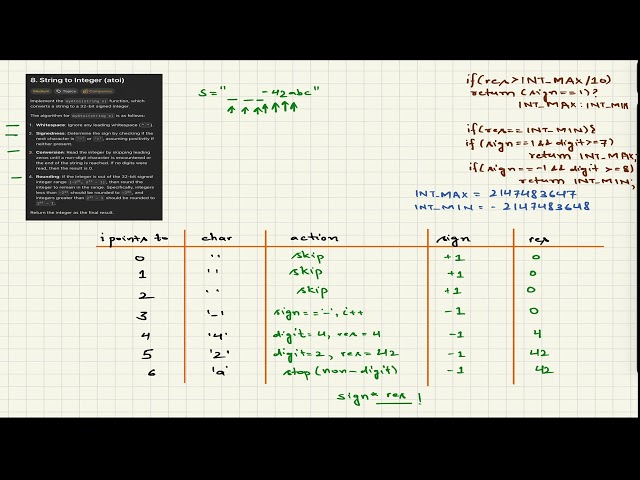 8. String to Integer (atoi)
Medium Topics Companies
Implement the myAtoi(string s) function, which
converts a string to a 32-bit signed integer.
The algorithm for myAtoi(string s) is as follows:
1. Whitespace: Ignore any leading whitespace (" ").
2. Signedness: Determine the sign by checking if the
next character is '-' or '+', assuming positivity if
neither present.
3. Conversion: Read the integer by skipping leading
zeros until a non-digit character is encountered or
the end of the string is reached. If no digits were
read, then the result is 0.
4. Rounding: If the integer is out of the 32-bit signed
integer range [-2^31, 2^31 - 1], then round the
integer to remain in the range. Specifically, integers
less than -2^31 should be rounded to -2^31, and
integers greater than 2^31 - 1 should be rounded to
2^31 - 1.
Return the integer as the final result.
s = " _ _ _ -42abc"
if(res > INT_MAX/10)
return (sign==1)?
INT_MAX : INT_MIN
if(res == INT_MIN){
if (sign==1 && digit>=7)
return INT_MAX;
if(sign==-1 && digit >=8)
return INT_MIN;
INT_MAX = 2147483647
INT_MIN = -2147483648
i points to char action sign res
0 ' ' skip +1 0
1 ' ' skip +1 0
2 ' ' skip +1 0
3 '-' sign=='-', i++ -1 0
4 '4' digit=4, res=4 -1 4
5 '2' digit=2, res=42 -1 42
6 'a' stop (non-digit) -1 42
sign* res !